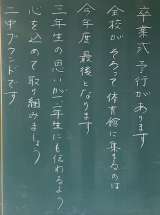 卒業式予行があります
全校がそろって体育館に集まるのは
今年度最後となります
三年生の思いが二年生にも伝わるよう
心を込めて取り組みましょう
二中ブランドです